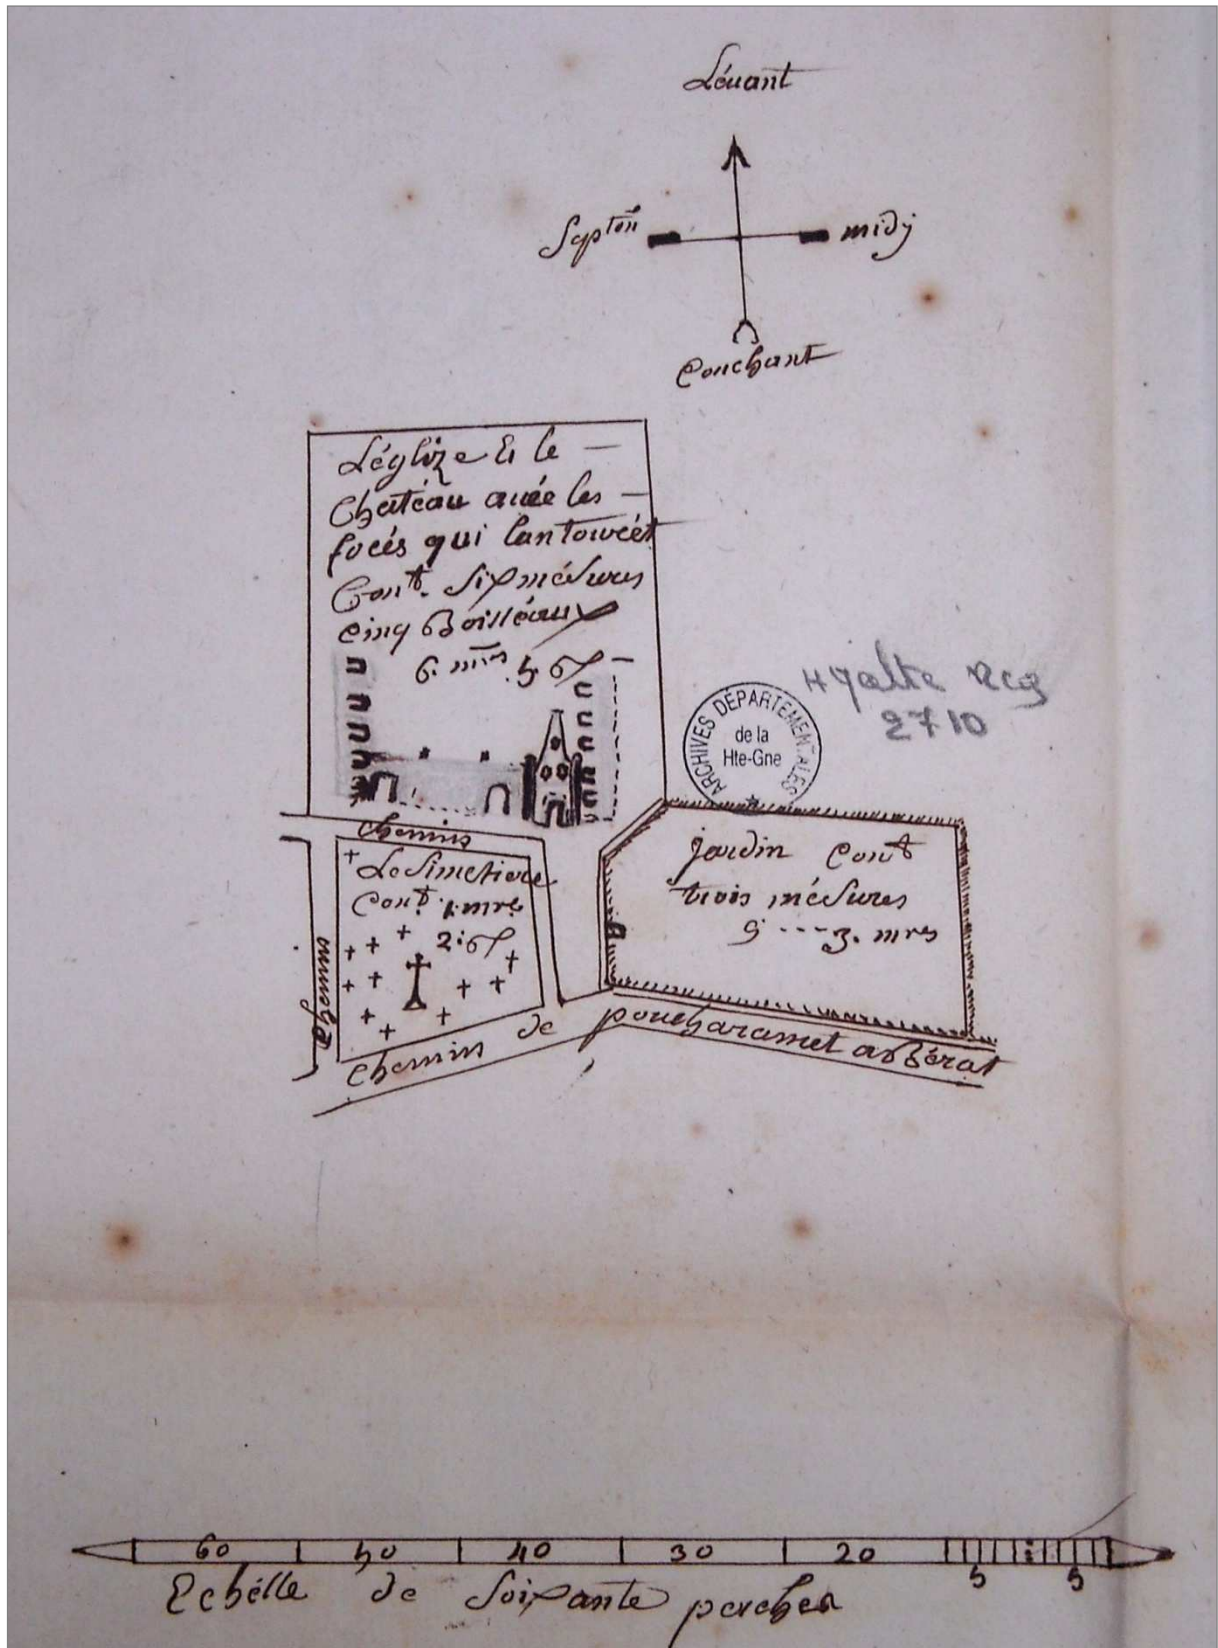 Léuant
Septon
midj
Couchant
Léglize Et le —
Chatéau auée les —
focés qui lantourcét
Cont. Six mésures
Cinq Boisséaux
6. mres 5 b —
H Malte
2710
ARCHIVES DÉPARTEMENTALES
de la
Hte-Gne
chemins
Le Simetiere
Cont. 1. mre
2: b
chemins
jardin Cont
trois mésures
3. mres
chemins de poucharamet a Bérat
60 50 40 30 20 5 5
Echélle de Soixante perches